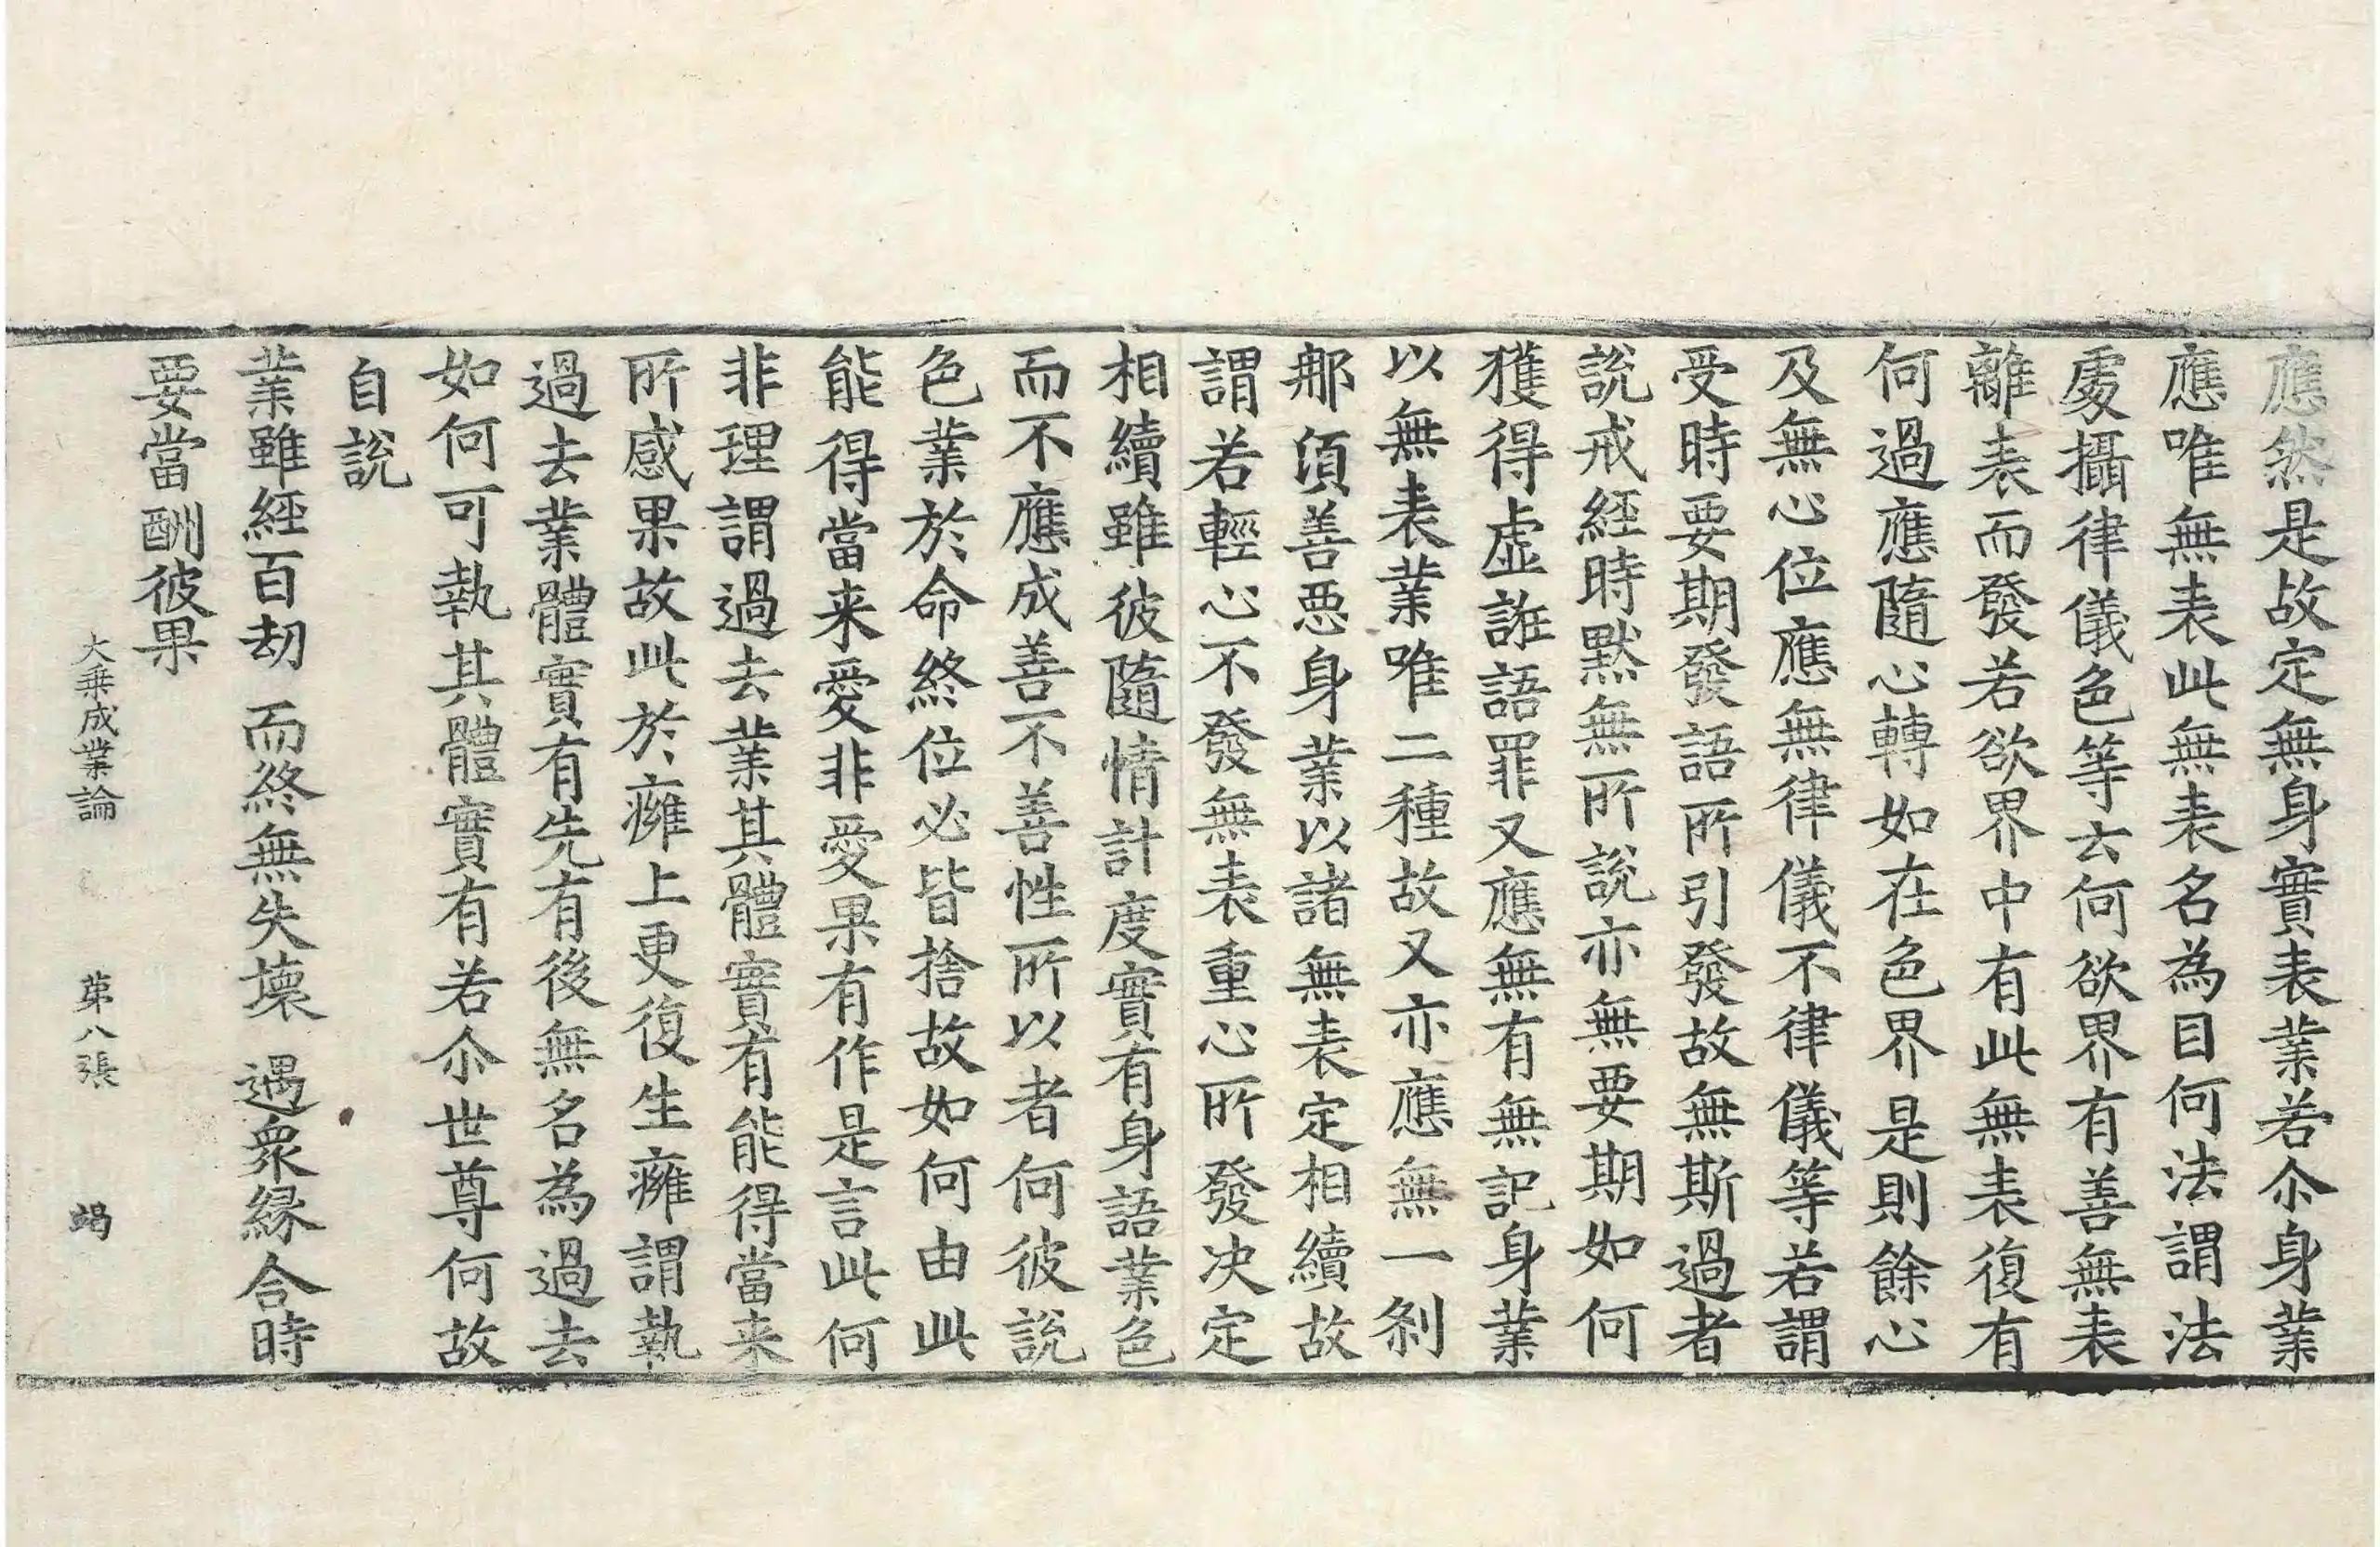 應然是故定無身實表業若尒身業
應唯無表此無表名為目何法謂法
處攝律儀色等云何欲界有善無表
離表而發若欲界中有此無表復有
何過應隨心轉如在色界是則餘心
及無心位應無律儀不律儀等若謂
受時要期發語所引發故無斯過者
說戒經時默無所說亦無要期如何
獲得虛誑語罪又應無有無記身業
以無表業唯二種故又亦應無一剎
那須善惡身業以諸無表定相續故
謂若輕心不發無表重心所發决定
相續雖彼隨情計度實有身語業色
而不應成善不善性所以者何彼說
色業於命終位必皆捨故如何由此
能得當来愛非愛果有作是言此何
非理謂過去業其體實有能得當来
所感果故此於癰上更復生癰謂執
過去業體實有先有後無名為過去
如何可執其體實有若尒世尊何故
自說
業雖經百劫　而終無失壞　遇衆縁合時
要當酬彼果
大乗成業論　第八張　竭